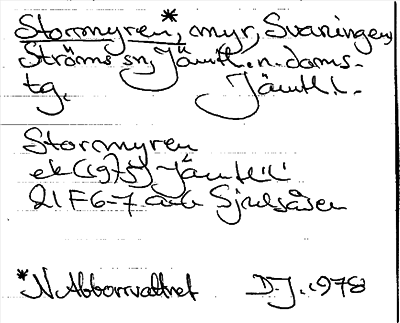 Stormyren*, myr, Svaningen,
Ströms sn, Jämtl. n. doms-
tg. Jämtl l.
Stormyren
ek (1975) Jämtl l
21 F 6-7 a-b Sjoulsåsen
*N Abborrvattnet D.J. 1978